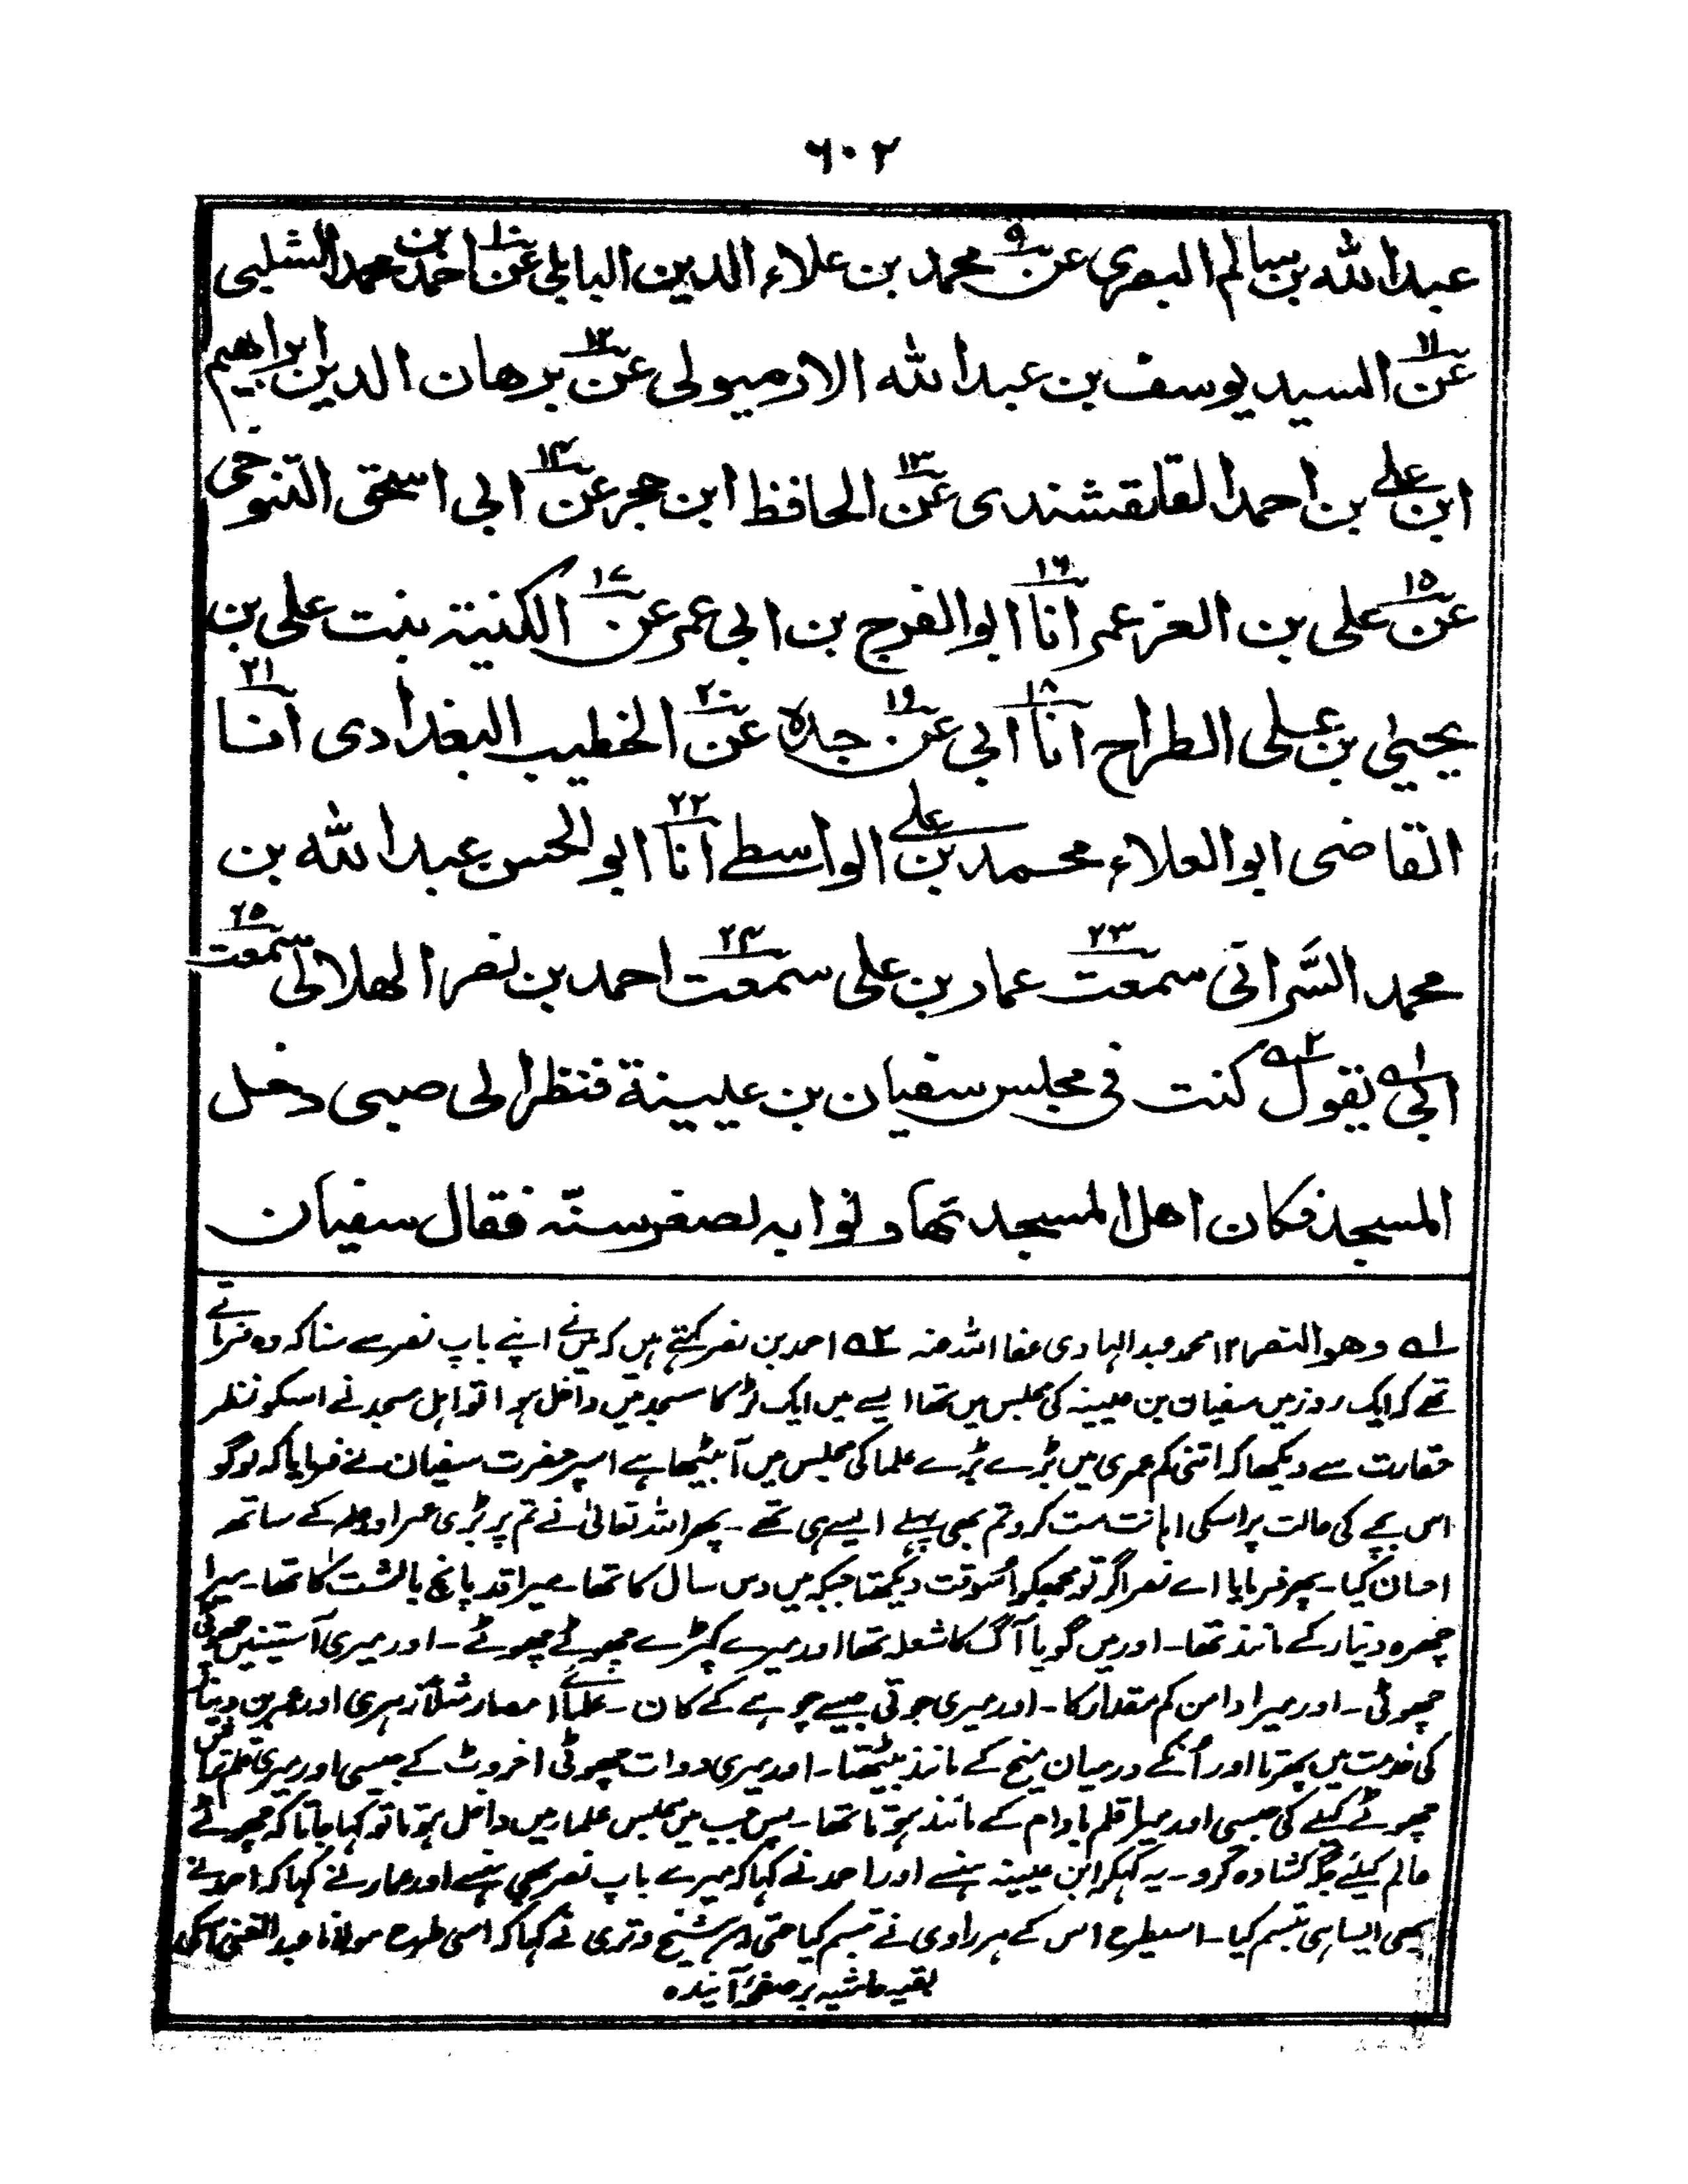 ٦٠٢
عبدالله بن سالم البصری عن۹ محمد بن علاء الدین البابلی عن۱۰ احمد بن محمد الشلبی
عن۱۱ السید یوسف بن عبدالله الارمیولی عن۱۲ برهان الدین ابراهیم
ابن علی بن احمد القلقشندی عن۱۳ الحافظ ابن حجر عن۱۴ ابی اسحٰق التنوخی
عن۱۵ علی بن العز عمر انا۱۶ ابوالفرج بن ابی عمر عن۱۷ الکنیة بنت علی بن
یحییٰ بن علی الطراح انا۱۸ ابی عن۱۹ جده عن۲۰ الخطیب البغدادی انا۲۱
القاضی ابوالعلاء محمد بن علی الواسطے انا۲۲ ابوالحسن عبدالله بن
محمد السَّراتی سمعت۲۳ عمار بن علی سمعت۲۴ احمد بن نصر الهلالی سمعت۲۵
ابی۱ یقول۲ کنت فی مجلس سفیان بن عیینة فنظر الی صبی دخل
المسجد فکان اهل المسجد تهاونوا به لصغر سنّه فقال سفیان
۱ وهو النصر ۱۲ محمد عبدالہادی عفا اللہ عنہ ۲ احمد بن نصر کہتے ہیں کہ میں نے اپنے باپ نصر سے سنا کہ وہ فرماتے
تھے کہ ایک روز میں سفیان بن عیینہ کی مجلس میں تھا ایسے میں ایک لڑکا مسجد میں داخل ہوا تو اہل مسجد نے اسکو نظر
حقارت سے دیکھا کہ اتنی کم عمری میں بڑے بڑے علما کی مجلس میں آ بیٹھا ہے اسپر حضرت سفیان نے فرمایا کہ لوگو
اس بچے کی حالت پر اسکی اہانت مت کرو تم بھی پہلے ایسے ہی تھے ۔ پھر اللہ تعالیٰ نے تم پر بڑی عمر اور علم کے ساتھ
احسان کیا ۔ پھر فرمایا اے نصر اگر تو مجھکو اسوقت دیکھتا جبکہ میں دس سال کا تھا ۔ میرا قد پانچ بالشت کا تھا ۔ میرا
چہرہ دینار کے مانند تھا ۔ اور میں گویا آگ کا شعلہ تھا اور میرے کپڑے چھوٹے چھوٹے ۔ اور میری آستینیں چھوٹی
چھوٹی ۔ اور میرا دامن کم مقدار کا ۔ اور میری جوتی جیسے چوہے کے کان ۔ علمائے امصار مثلاً زہری اور عمرو بن دینار
کی خدمت میں پھرتا اور اُنکے درمیان میخ کے مانند بیٹھتا ۔ اور میری دوات چھوٹی اخروٹ کے جیسی اور میری قلمقاش
چھوٹے کیلے کی جیسی اور میرا قلم بادام کے مانند ہوتا تھا ۔ پس جب میں مجلس علما میں داخل ہوتا تو کہا جاتا کہ چھوٹے
عالم کیلئے جگہ کشادہ کرو ۔ یہ کہکر ابن عیینہ ہنسے اور احمد نے کہا کہ میرے باپ نصر بھی ہنسے اور عمار نے کہا کہ احمد نے
بھی ایسا ہی تبسم کیا ۔ اسیطرح اس کے ہر راوی نے تبسم کیا حتی کہ شیخ وتری نے کہا کہ اسی طرح مولانا عبد الغنی
بقیہ حاشیہ بر صفحۂ آیندہ